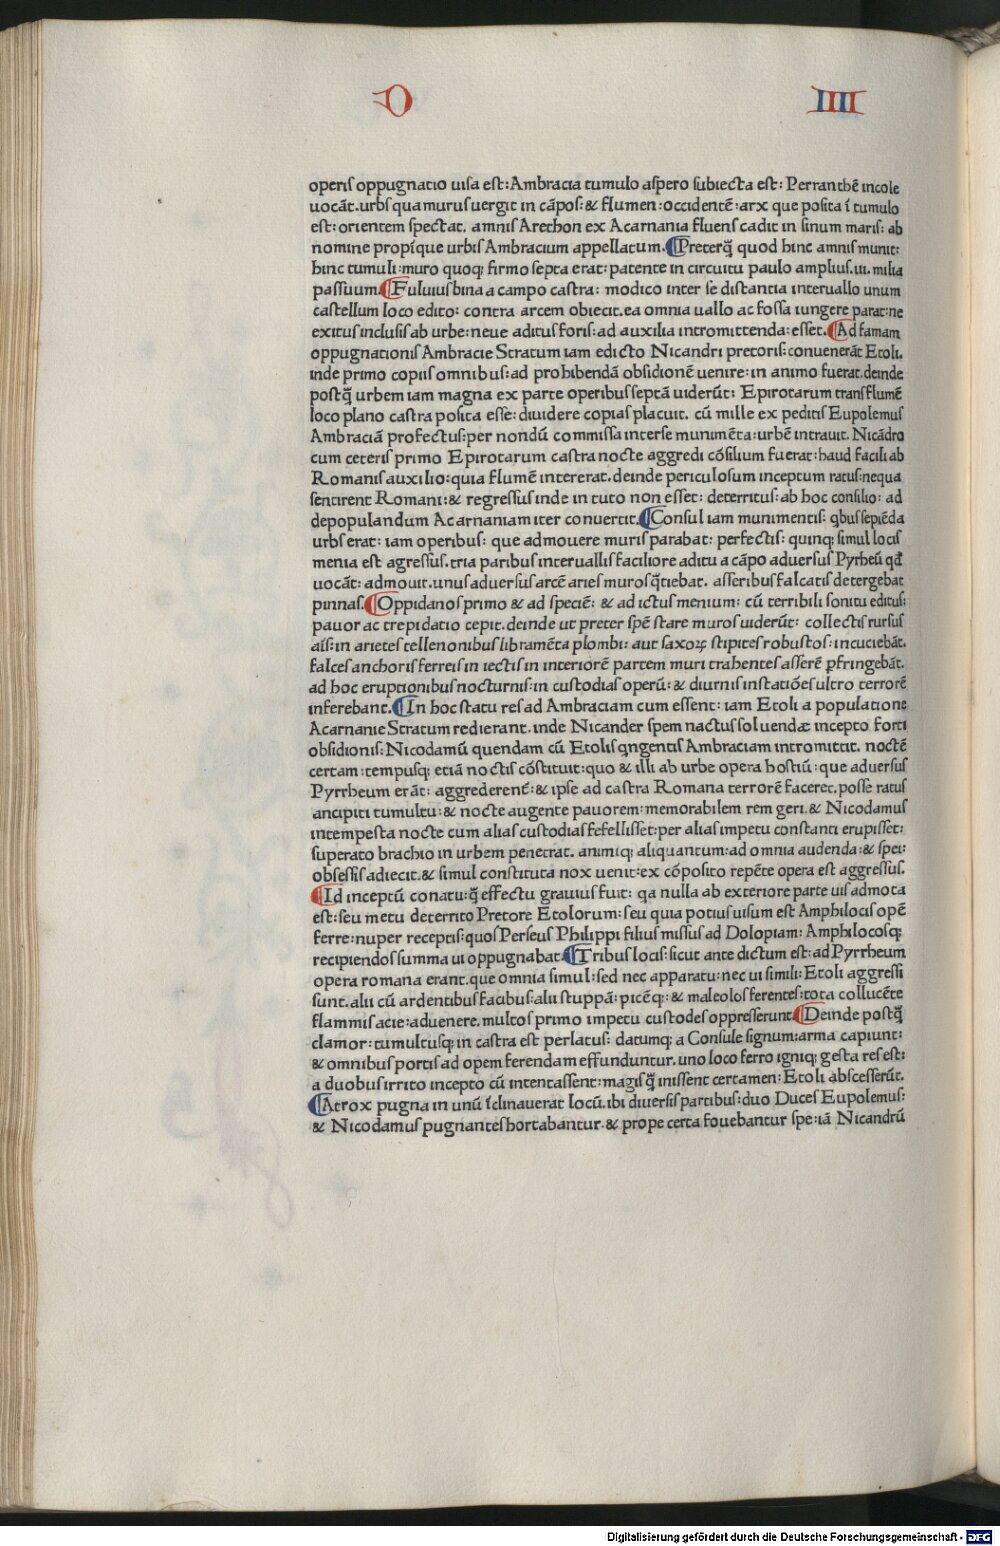 D IIII
operis oppugnatio uisa est: Ambracia tumulo aspero subiecta est: Perranthē incole
uocāt. urbs qua murus uergit in cāpos: & flumen: occidentē: arx que posita ī tumulo
est: orientem spectat. amnis Arethon ex Acarnania fluens cadit in sinum maris: ab
nomine propīque urbis Ambracium appellatum. ¶Preterq̄ quod hinc amnis munit:
hinc tumuli: muro quoq; firmo septa erat: patente in circuitu paulo amplius .iii. milia
passuum. ¶Fuluius bina a campo castra: modico inter se distantia interuallo unum
castellum loco edito: contra arcem obiecit. ea omnia uallo ac fossa iungere parat: ne
exitus inclusis ab urbe: neue aditus foris: ad auxilia intromittenda: esset. ¶Ad famam
oppugnationis Ambracie Stratum iam edicto Nicandri pretoris: conuenerāt Etoli.
inde primo copiis omnibus: ad prohibendā obsidionē uenire: in animo fuerat. deinde
postq̄ urbem iam magna ex parte operibus septā uiderūt: Epirotarum trans flumē
loco plano castra posita esse: diuidere copias placuit. cū mille ex peditis Eupolemus
Ambraciā profectus: per nondū commissa inter se munimēta: urbē intrauit. Nicādro
cum ceteris primo Epirotarum castra nocte aggredi cōsilium fuerat: haud facili ab
Romanis auxilio: quia flumē intererat. deinde periculosum inceptum ratus: nequa
sentirent Romani: & regressus inde in tuto non esset: deterritus: ab hoc consilio: ad
depopulandum Acarnaniam iter conuertit. ¶Consul iam munimentis: qbus sepiēda
urbs erat: iam operibus: que admouere muris parabat: perfectis: quinq; simul locis
menia est agressus. tria paribus interuallis faciliore aditu a cāpo aduersus Pyrheū qđ
uocāt: admouit. unus aduersus arcē aries muros q̄tiebat. asseribus falcatis detergebat
pinnas. ¶Oppidanos primo & ad speciē: & ad ictus menium: cū terribili sonitu editus:
pauor ac trepidatio cepit. deinde ut preter spē stare muros uiderūt: collectis rursus
aīs: in arietes tellenonibus libramēta plombi: aut saxoꝝ stipites robustos: incuciebāt.
falces anchoris ferreis in iectis in interiorē partem muri trahentes asserē pfringebāt.
ad hoc eruptionibus nocturnis: in custodias operū: & diurnis in statiōes ultro terrorē
inferebant. ¶In hoc statu res ad Ambraciam cum essent: iam Etoli a populatione
Acarnanie Stratum redierant. inde Nicander spem nactus soluendæ incepto forti
obsidionis: Nicodamū quendam cū Etolis qngentis Ambraciam intromittit. noctē
certam: tempusq; etiā noctis cōstituit: quo & illi ab urbe opera hostiū: que aduersus
Pyrrheum erāt: aggrederent᷑: & ipse ad castra Romana terrorē faceret. posse ratus
ancipiti tumultu: & nocte augente pauorem: memorabilem rem geri. & Nicodamus
intempesta nocte cum alias custodias fefellisset: per alias impetu constanti erupisset:
superato brachio in urbem penetrat. animiq; aliquantum: ad omnia audenda: & spei:
obsessis adiecit. & simul constituta nox uenit: ex cōposito repēte opera est aggressus.
¶Id inceptū conatu: q̄ effectu grauius fuit: qa nulla ab exteriore parte uis admota
est: seu metu deterrito Pretore Etolorum: seu quia potius uisum est Amphilocis opē
ferre: nuper receptis: quos Perseus Philippi filius missus ad Dolopiam: Amphilocosq;
recipiendos summa ui oppugnabat. ¶Tribus locis: sicut ante dictum est: ad Pyrrheum
opera romana erant. que omnia simul: sed nec apparatu: nec ui simili: Etoli aggressi
sunt. alii cū ardentibus facibus: alii stuppā: picēq;: & maleolos ferentes: tota collucēte
flammis acie: aduenere. multos primo impetu custodes oppresserunt. ¶Deinde postq̄
clamor: tumultusq; in castra est perlatus: datumq; a Consule signum: arma capiunt:
& omnibus portis ad opem ferendam effunduntur. uno loco ferro igniq; gesta res est:
a duobus irrito incepto cū intentassent: magis q̄ inissent certamen: Etoli abscesserūt.
¶Atrox pugna in unū īclinauerat locū. ibi diuersis partibus: duo Duces Eupolemus:
& Nicodamus pugnantes hortabantur. & prope certa fouebantur spe: iā Nicandrū
Digitalisierung gefördert durch die Deutsche Forschungsgemeinschaft - DFG